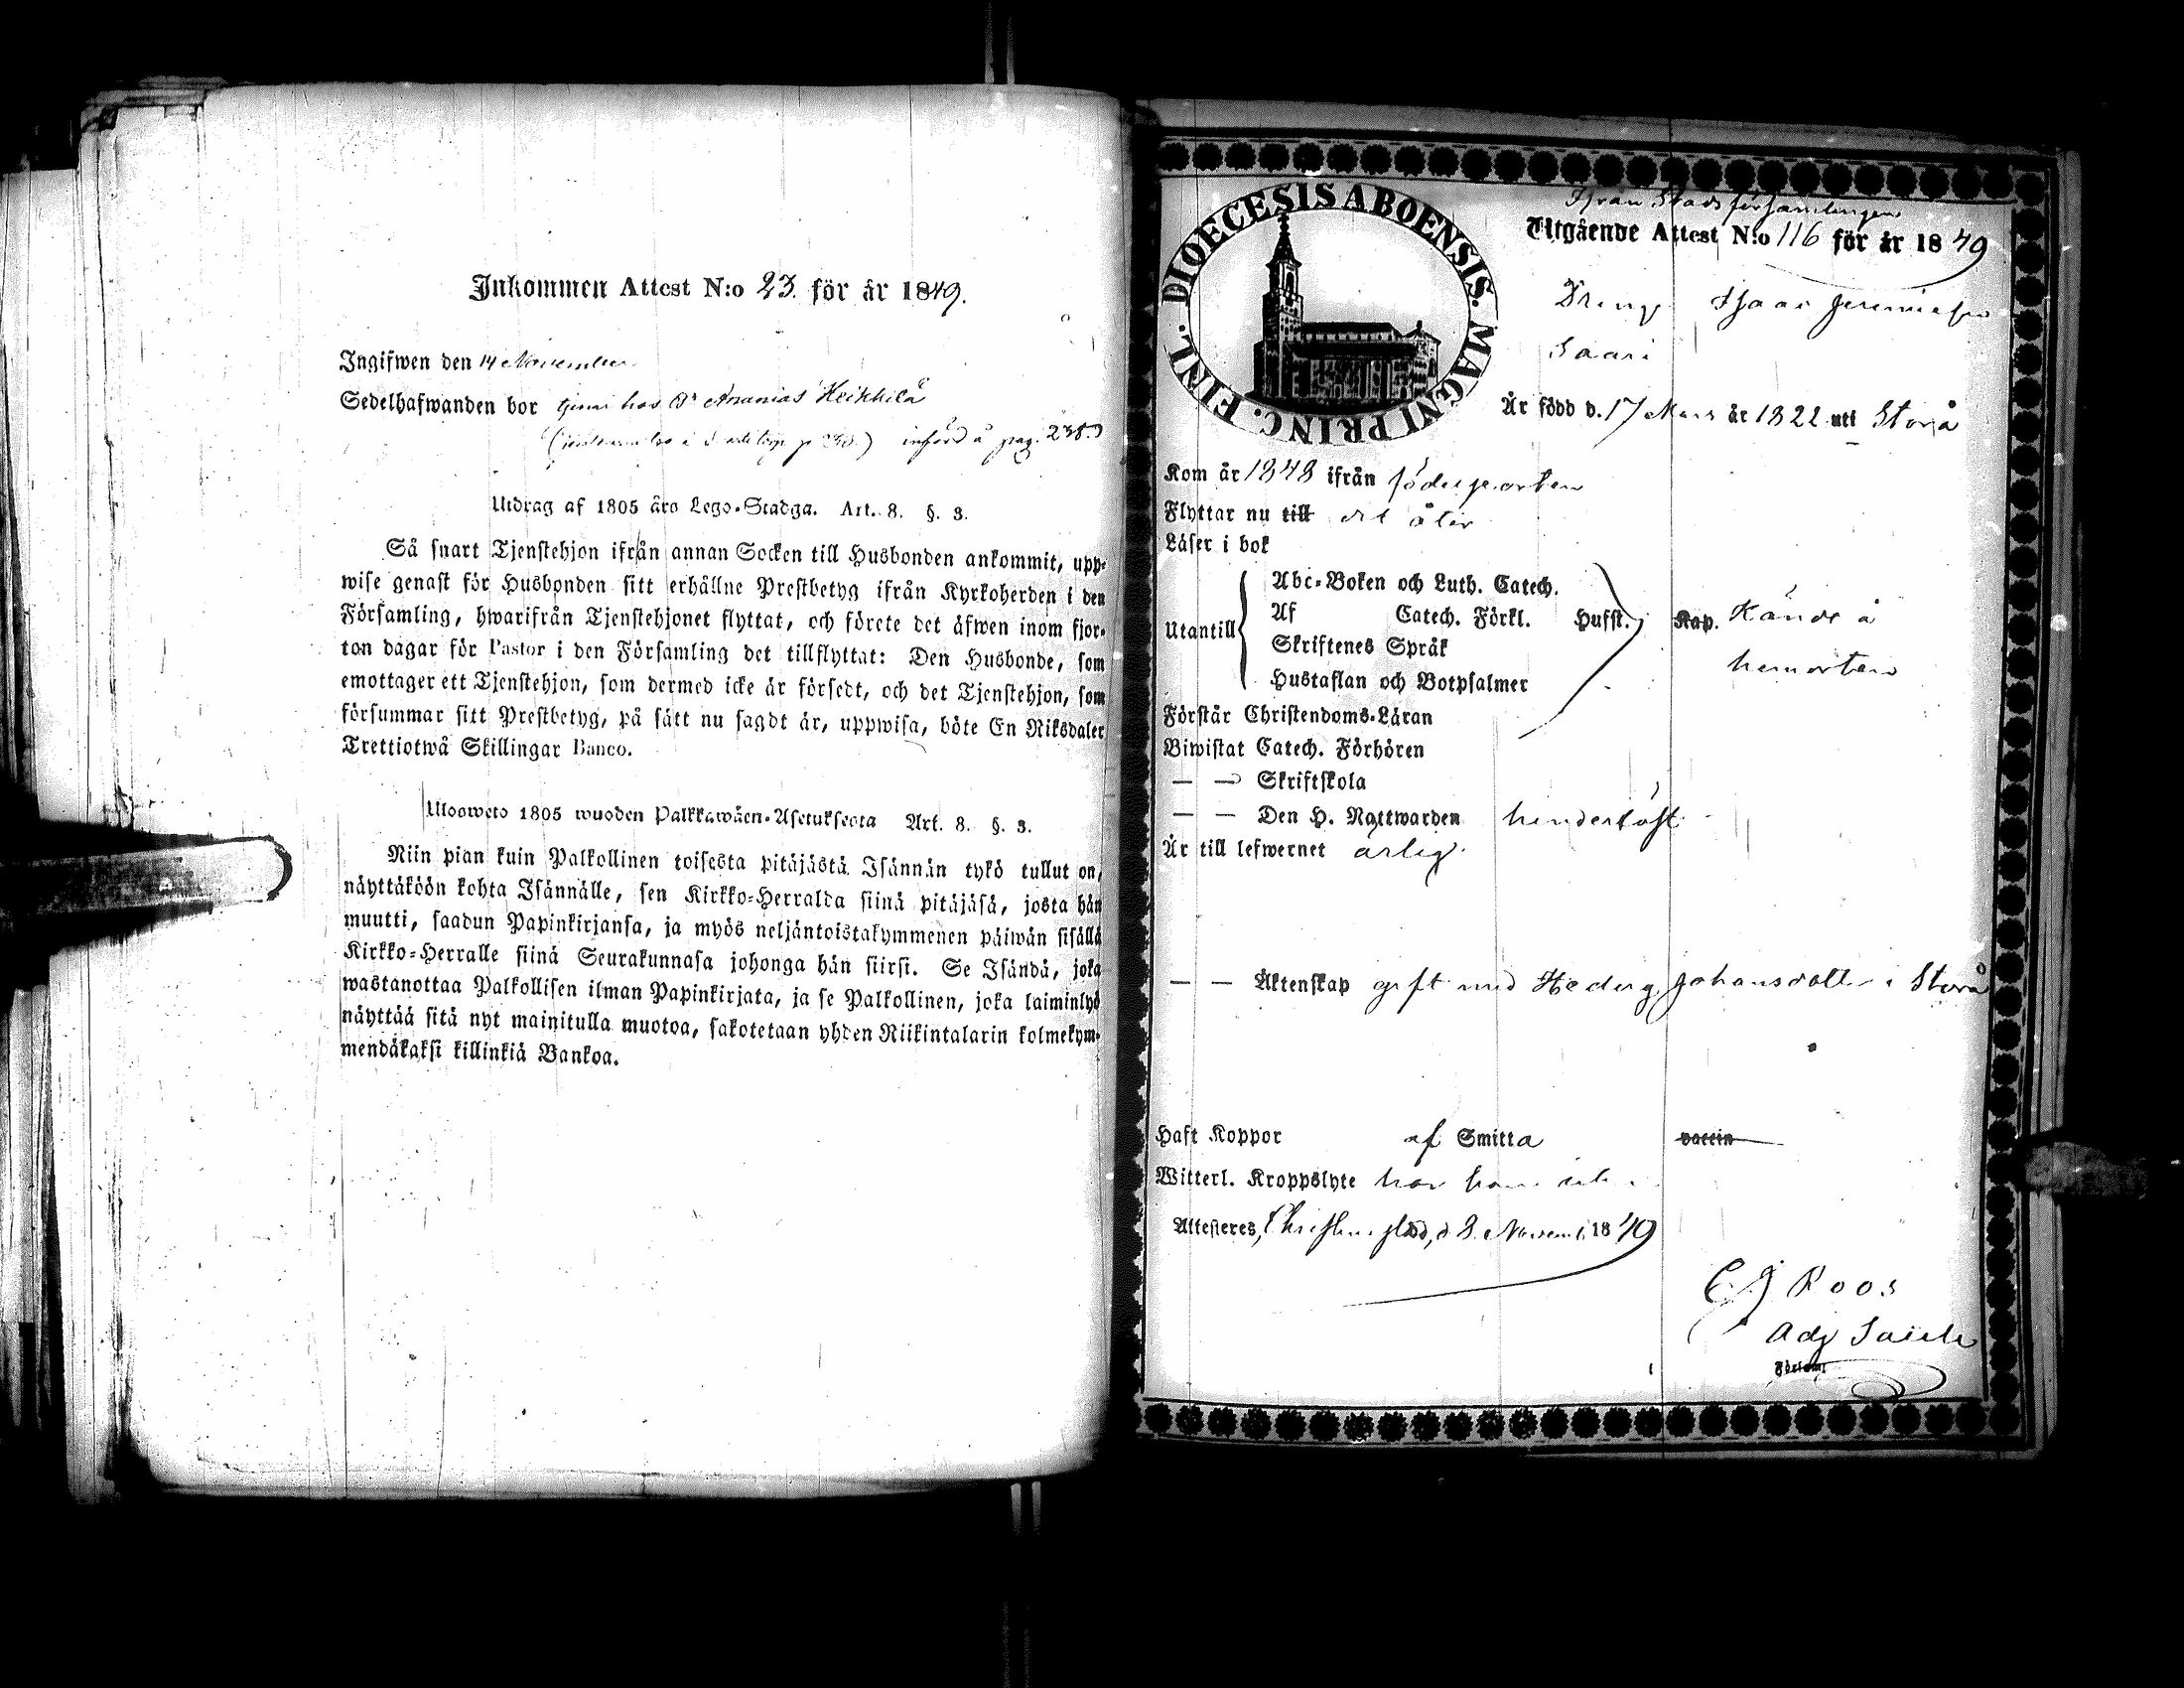 Inkommen Attest N:o 23. för år 1849.
Ingifwen den 14 November
Sedelhafwanden bor tjenar hos Bn Ananias Heikkilä
införd å pag. 238.
Utdrag af 1805 års Lego-Stadga. Art. 8. §. 3.
Så snart Tjenstehjon ifrån annan Socken till Husbonden ankommit, upp-
wise genast för Husbonden sitt erhållne Prestbetyg ifrån Kyrkoherden i den
Församling, hwarifrån Tjenstehjonet flyttat, och förete det äfwen inom fjor-
ton dagar för Pastor i den Församling det tillflyttat: Den Husbonde, som
emottager ett Tjenstehjon, som dermed icke är försedt, och det Tjenstehjon, som
försummar sitt Prestbetyg, på sätt nu sagdt är, uppwisa, böte En Riksdaler
Trettiotwå Skillingar Banco.
Ulosweto 1805 wuoden Palkkawäen-Asetuksesta Art. 8. §. 3.
Niin pian kuin Palkollinen toisesta pitäjästä Isännän tykö tullut on,
näyttäköön kohta Isännälle, sen Kirkko-Herralda siinä pitäjäsä, josta hän
muutti, saadun Papinkirjansa, ja myös neljäntoistakymmenen päiwän sisällä
Kirkko-Herralle siinä Seurakunnasa johonga hän siirsi. Se Isändä, joka
wastanottaa Palkollisen ilman Papinkirjata, ja se Palkollinen, joka laiminlyö
näyttää sitä nyt mainitulla muotoa, sakotetaan yhden Riikintalarin kolmekym-
mendäkaksi killinkiä Bankoa.
DIOECESIS ABOENSIS. MAGNI PRINC. FINL.
Ifrån Stadsförsamlingen
Utgående Attest N:o 116 för år 1849
Dreng Isaac Jeremiasson
Saari
Är född d. 17 Mars år 1822 uti Storå
Kom år 1848 ifrån födelseorten
Flyttar nu till dit åter
Läser i bok
Utantill
Abc-Boken och Luth. Catech.
Af Catech. Förkl. Hufst. Kap. Kände å
Skriftenes Språk
hemorten
Hustaflan och Botpsalmer
Förstår Christendoms-Läran
Biwistat Catech. Förhören
— — Skriftskola
— — Den H. Nattwarden hinderlöst
Är till lefwernet ärlig.
— — Äktenskap gift med Hedvig Johansdotter i Storå
Haft Koppor af Smitta vaccin
Witterl. Kroppslyte har han icke.
Attesteres, Christinestad, d. 8. Novemb. 1849
C J Roos
Adj